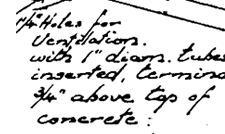 1/4" Holes for
Ventilation.
with 1" diam. tubes
inserted, termina
3/4" above top of
concrete.